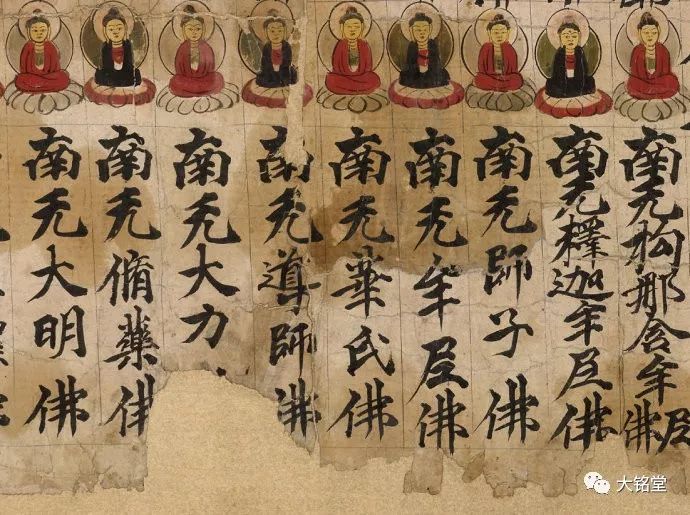 南无拘那含牟尼佛
南无釋迦牟尼佛
南无師子佛
南无牟尼佛
南无華氏佛
南无導師佛
南无大力
南无脩藥佛
南无大明佛
大铭堂